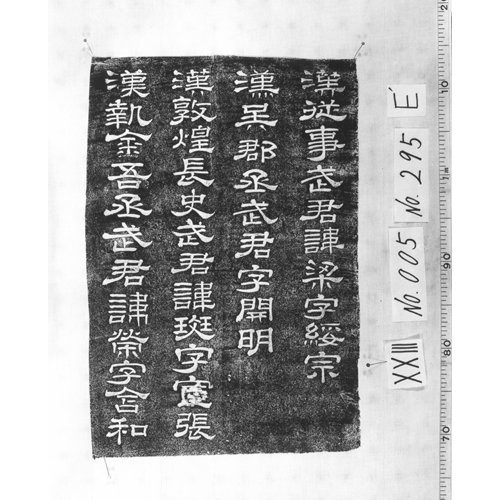 漢従事武君諱梁字綏宗
漢吳郡丞武君字開明
漢敦煌長史武君諱斑字宣張
漢執金吾丞武君諱榮字含和
XXIII No. 005 No. 295 E'
20
10
1m
90
80
70